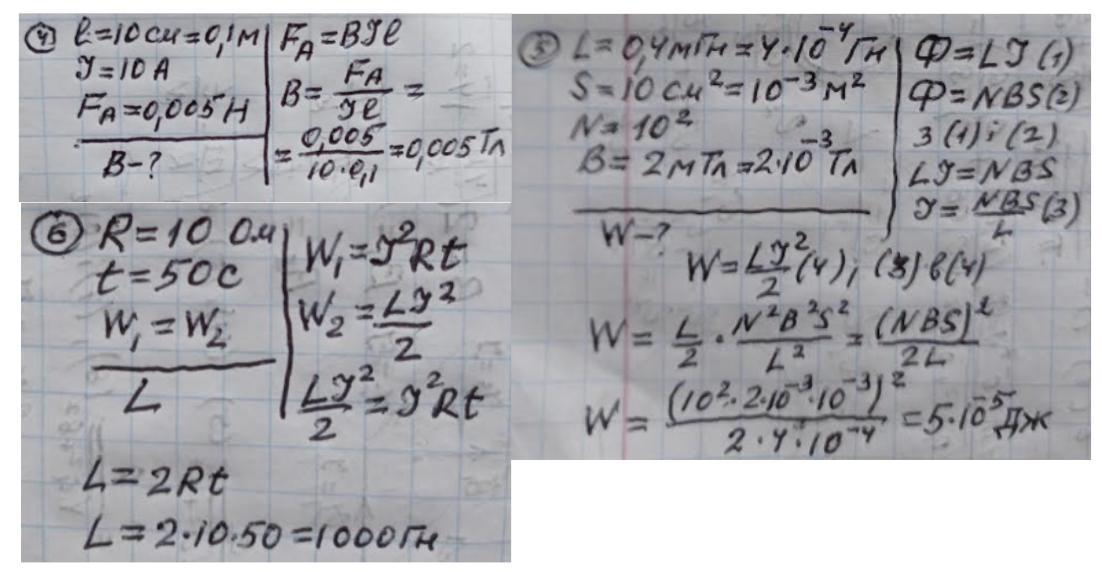 ④ l=10см=0,1м
I=10А
F_A=0,005Н
B-?
F_A=BIl
B=F_A/Il=
=0,005/10·0,1=0,005Тл
⑤ L=0,4мГн=4·10⁻⁴Гн
S=10см²=10⁻³м²
N=10²
B=2мТл=2·10⁻³Тл
W-?
Ф=LI(1)
Ф=NBS(2)
З (1) і (2)
LI=NBS
I=NBS/L(3)
W=LI²/2(4); (3) в (4)
W=L/2·N²B²S²/L²=(NBS)²/2L
W=(10²·2·10⁻³·10⁻³)²/2·4·10⁻⁴=5·10⁻⁵Дж
⑥ R=10 Ом
t=50с
W₁=W₂
L
W₁=I²Rt
W₂=LI²/2
LI²/2=I²Rt
L=2Rt
L=2·10·50=1000Гн